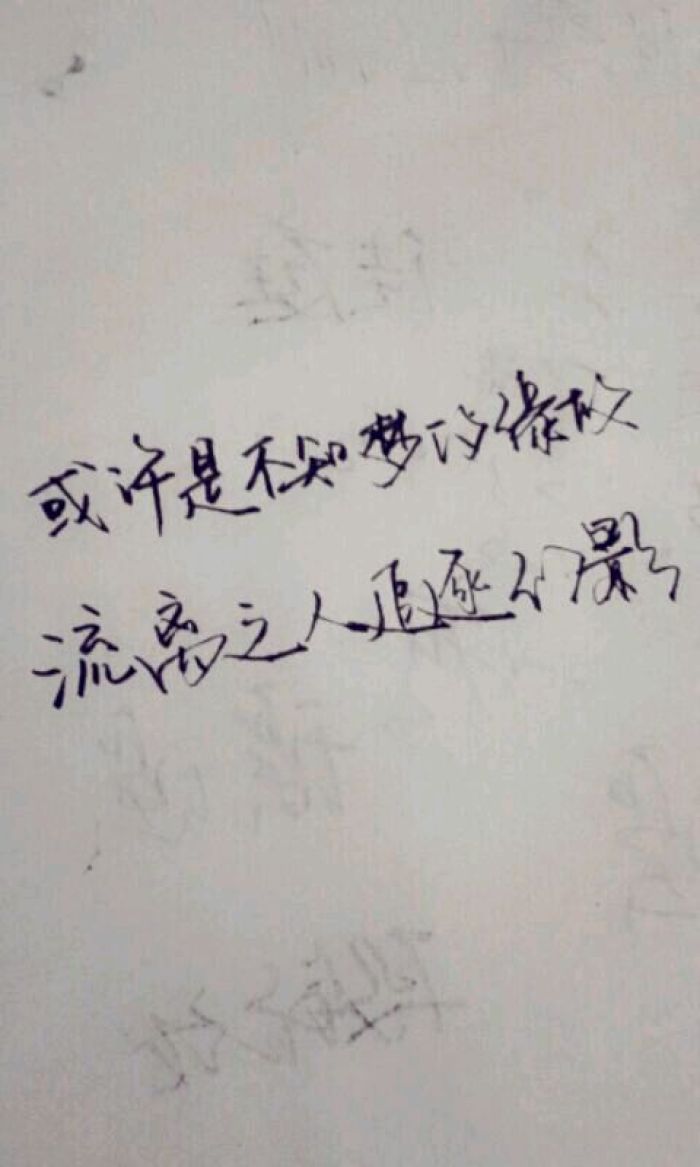 或许是不知梦的缘故
流离之人追逐幻影